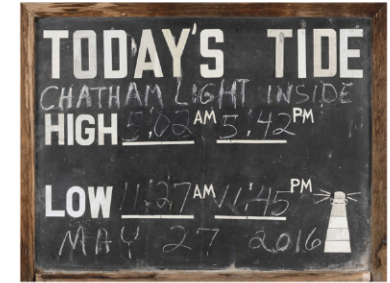 TODAY'S TIDE
CHATHAM LIGHT INSIDE
HIGH 5:02 AM 5:42 PM
LOW 11:27 AM 11:45 PM
MAY 27 2016